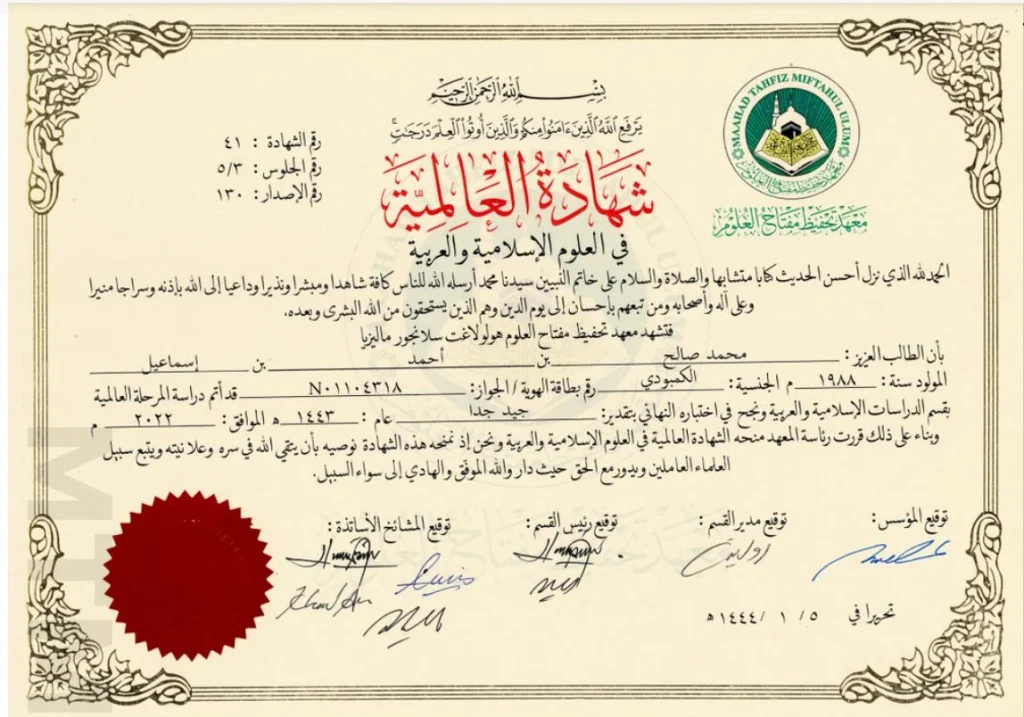 بِسْمِ اللهِ الرَّحْمٰنِ الرَّحِيْمِ
يَرْفَعِ اللَّهُ الَّذِينَ ءَامَنُوا مِنكُمْ وَالَّذِينَ أُوتُوا الْعِلْمَ دَرَجَٰتٍ
MAAHAD TAHFIZ MIFTAHUL ULUM
معهد تحفيظ مفتاح العلوم
رقم الشهادة : ٤١
رقم الجلوس : ٥/٣
رقم الإصدار : ١٣٠
شَهَادَةُ العَالِمِيَّة
في العلوم الإسلامية والعربية
الحمد لله الذي نزل أحسن الحديث كتابا متشابها والصلاة والسلام على خاتم النبيين سيدنا محمد أرسله الله للناس كافة شاهدا ومبشرا ونذيرا وداعيا إلى الله بإذنه وسراجا منيرا
وعلى آله وأصحابه ومن تبعهم بإحسان إلى يوم الدين وهم الذين يستحقون من الله البشرى وبعده.
فتشهد معهد تحفيظ مفتاح العلوم هولو لاغت سلانجور ماليزيا
بأن الطالب العزيز : محمد صالح بن أحمد بن إسماعيل
المولود سنة : ١٩٨٨ م الجنسية : الكمبودي رقم بطاقة الهوية / الجواز : N٠١١٠٤٣١٨ قد أتم دراسة المرحلة العالمية
بقسم الدراسات الإسلامية والعربية ونجح في اختباره النهائي بتقدير: جيد جدا عام : ١٤٤٣ ه الموافق : ٢٠٢٢ م
وبناء على ذلك قررت رئاسة المعهد منحه الشهادة العالمية في العلوم الإسلامية والعربية ونحن إذ نمنحه هذه الشهادة نوصيه بأن يتقي الله في سره وعلانيته ويتبع سبيل
العلماء العاملين ويدور مع الحق حيث دار والله الموفق والهادي إلى سواء السبيل.
توقيع المؤسس : توقيع مدير القسم : توقيع رئيس القسم : توقيع المشائخ الأساتذة :
تحريرا في ٥ / ١ / ١٤٤٤ه